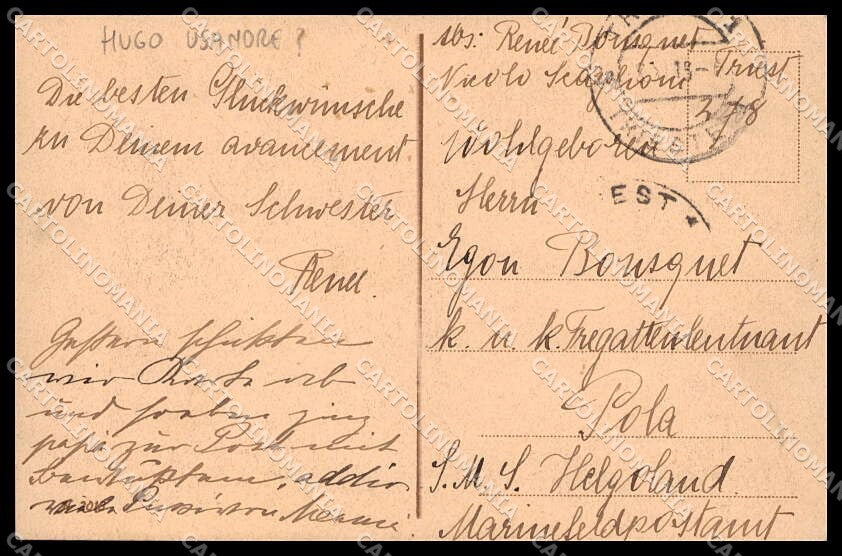 HUGO USANDRE?
Die besten Glückwünsche
zu Deinem avancement
von Deiner Schwester
Reneé.
Gestern schickten
wir Karte ab
und soeben ging
papa zur Post mit
addio
von Mama.
Abs: Reneé Bousquet
Nicolo Scaglioni
Triest
3/78
Wohlgeboren
Herrn
EST *
Egon Bousquet
k. u. k. Fregattenleutnant
Pola
S. M. S. Helgoland
Marinefeldpostamt
CARTOLINOMANIA